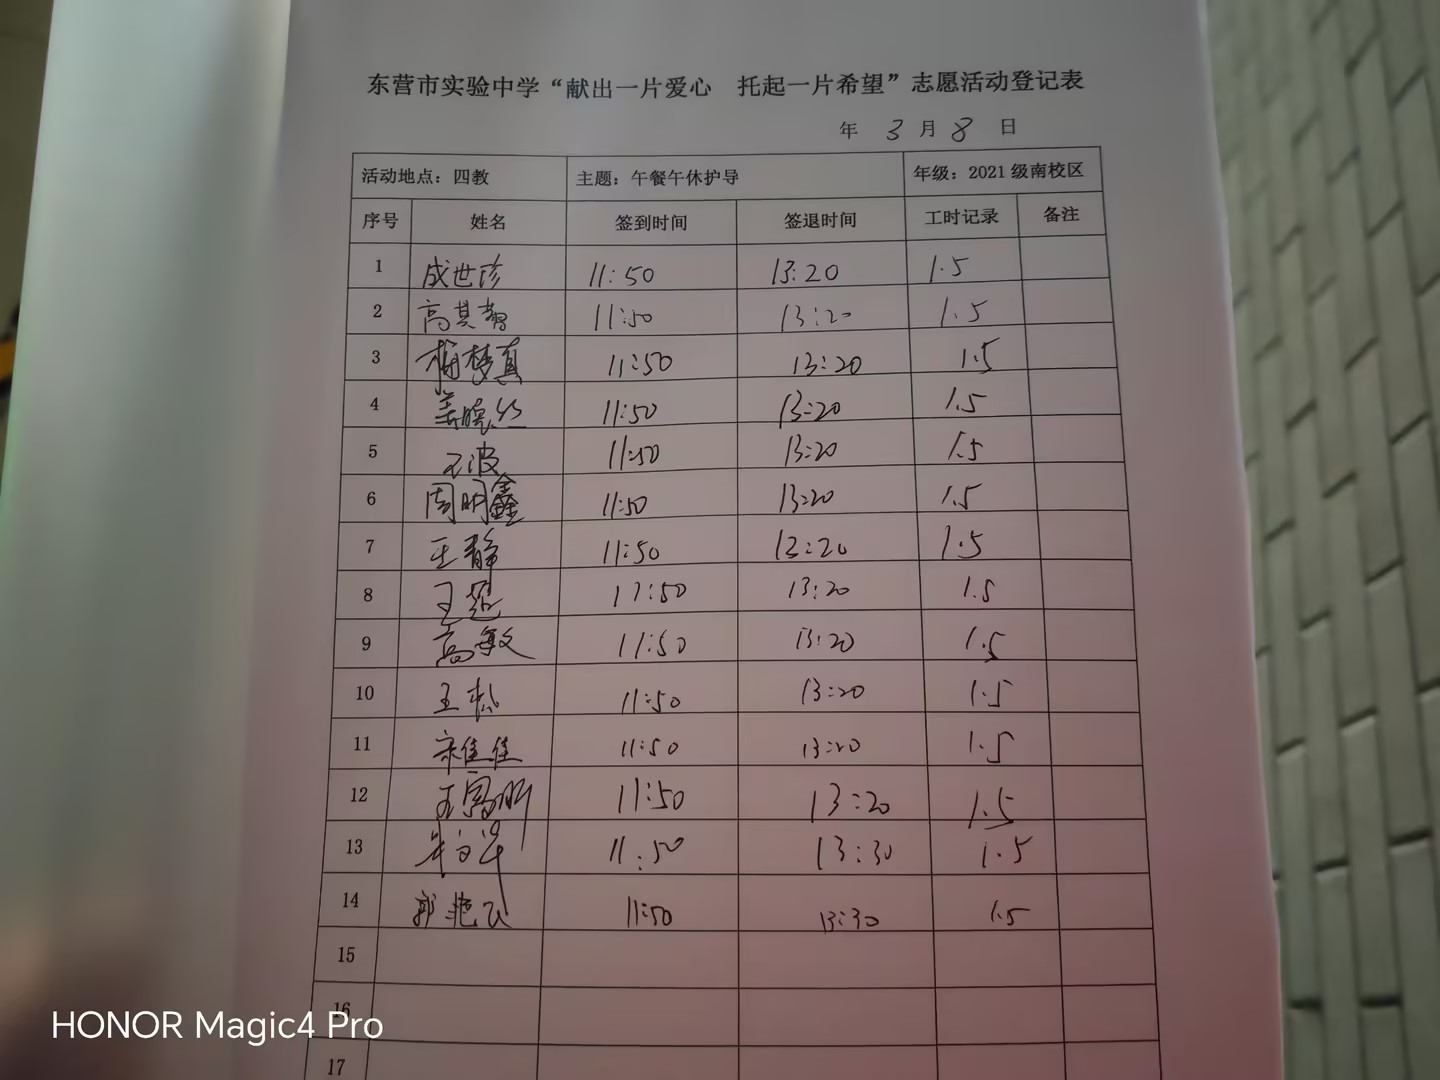 东营市实验中学“献出一片爱心 托起一片希望”志愿活动登记表
年 3 月 8 日
活动地点：四教 主题：午餐午休护导 年级：2021 级南校区
序号 姓名 签到时间 签退时间 工时记录 备注
1 成世珍 11:50 13:20 1.5
2 高其智 11:50 13:20 1.5
3 梦真 11:50 13:20 1.5
4 姜晓丝 11:50 13:20 1.5
5 王波 11:50 13:20 1.5
6 周明鑫 11:50 13:20 1.5
7 王静 11:50 13:20 1.5
8 王超 11:50 13:20 1.5
9 高敏 11:50 13:20 1.5
10 王松 11:50 13:20 1.5
11 宋佳佳 11:50 13:20 1.5
12 王 11:50 13:20 1.5
13 11:50 13:30 1.5
14 郭艳飞 11:50 13:30 1.5
15
16
17
HONOR Magic4 Pro